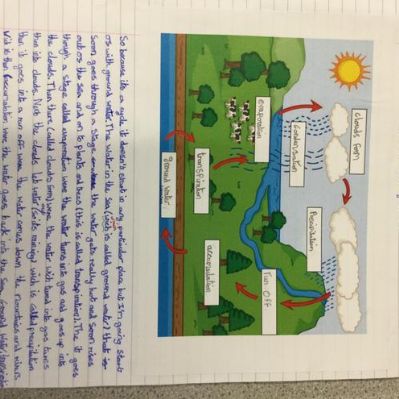 clouds form
Condensation
evaporation
Precipitation
transpiration
ground water
accumulation
run off
So because its a cycle it doesn't start in any particular place but I'm going start
of with ground water. The water in the sea (wich is called ground water) that is
soon goes through a stage where the water gets really hot and soon rises
out os the sea and on to plants and trees (this is called transpiration). The it goes
though a stage called evaporation were the water turns into gas and goes up into
the clouds. Then there (called clouds form) were the water wich turned into gas turns
then into clouds. Next the clouds let water (parts rainloy) wich is called precipitation
then it goes into a run off were the water comes down the mountains and rivers.
wich is then accumulation were the water goes back into the sea. Ground water/